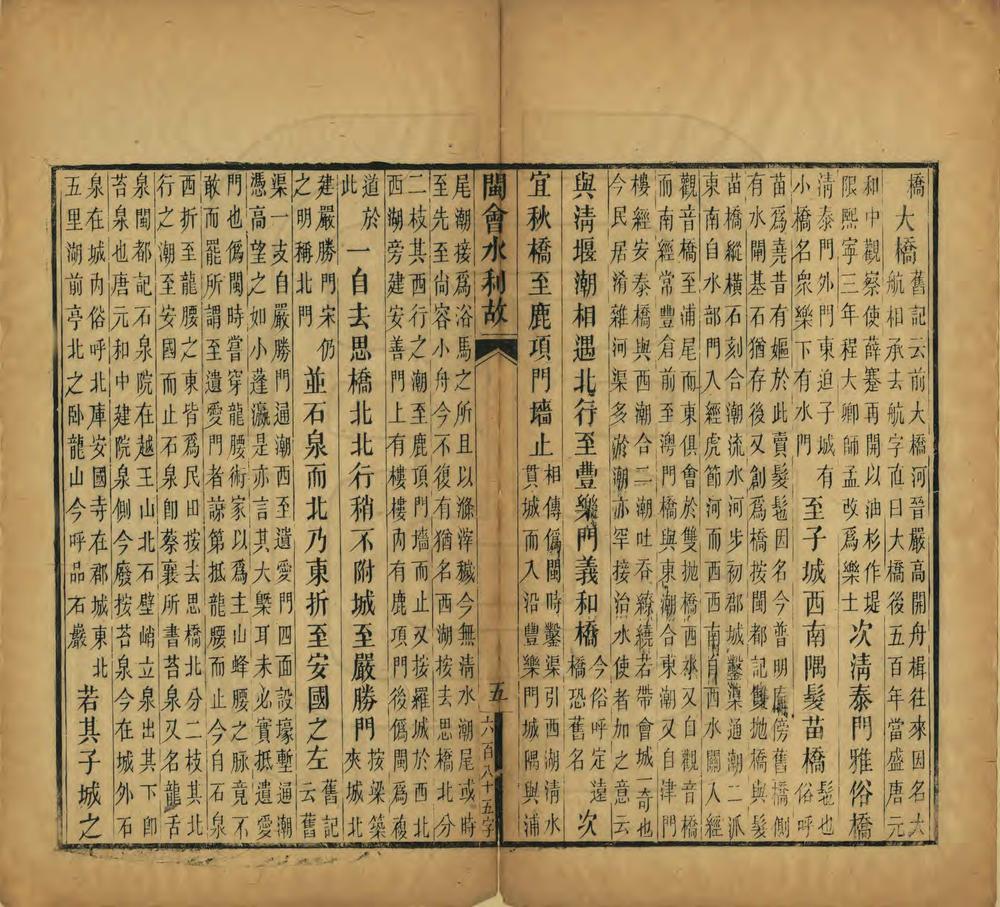 橋大橋舊記云前大橋河晉嚴高開舟楫往來因名大
航相承去航字直曰大橋後五百年當盛唐元
和中觀察使薛謇再開以油杉作堤
限熙寧三年程大卿師孟改爲樂士次清泰門雅俗橋
清泰門外門東迫子城有
小橋名衆樂下有水門至子城西南隅髮苗橋髢也俗呼
苗爲堯昔有嫗於此賣髮髢因名今普明庵傍舊橋側
有水閘基石猶存後又創爲橋按閩都記雙抛橋與髮
苗橋縱橫石刻合潮流水河步初郡城鑿渠通潮二派
東南自水部門入經虎節河而西西南自西水關入經
觀音橋至浦尾而東俱會於雙抛橋西水又自觀音橋
而南經常豐倉前至澳門橋與東潮合東潮又自津門
樓經安泰橋與西潮合二潮吐吞繚繞若帶會城一奇也
今民居淆雜河渠多淤潮亦罕接治水使者加之意云
與清堰潮相遇北行至豐樂門義和橋今俗呼定遠
橋恐舊名次
宜秋橋至鹿項門墻止相傳僞閩時鑿渠引西湖清水
貫城而入沿豐樂門城隅與浦
閩會水利故 五 六百八十五字
尾潮接爲浴馬之所且以滌滓穢今無清水潮尾或時
至先至尙容小舟今不復有猶名西湖按去思橋北分
二枝其西行之潮至鹿頂門墻而止又按羅城於西北
西湖旁建安善門上有樓樓內有鹿項門後僞閩爲複
道於
此一自去思橋北北行稍不附城至嚴勝門按梁築
夾城北
建嚴勝門宋仍
之明稱北門並石泉而北乃東折至安國之左舊記
云舊
渠一支自嚴勝門逼潮西至遺愛門四面設壕塹通潮
憑高望之如小蓬瀛是亦言其大槩耳未必實抵遺愛
門也僞閩時嘗穿龍腰術家以爲主山蜂腰之脉竟不
敢而罷所謂至遺愛門者諒第抵龍腰而止今自石泉
西折至龍腰之東皆爲民田按去思橋北分二枝其北
行之潮至安國而止石泉卽蔡襄所書苔泉又名龍舌
泉閩都記石泉院在越王山北石壁峭立泉出其下卽
苔泉也唐元和中建院泉側今廢按苔泉今在城外石
泉在城內俗呼北庫安國寺在郡城東北
五里湖前亭北之卧龍山今呼品石巖若其子城之